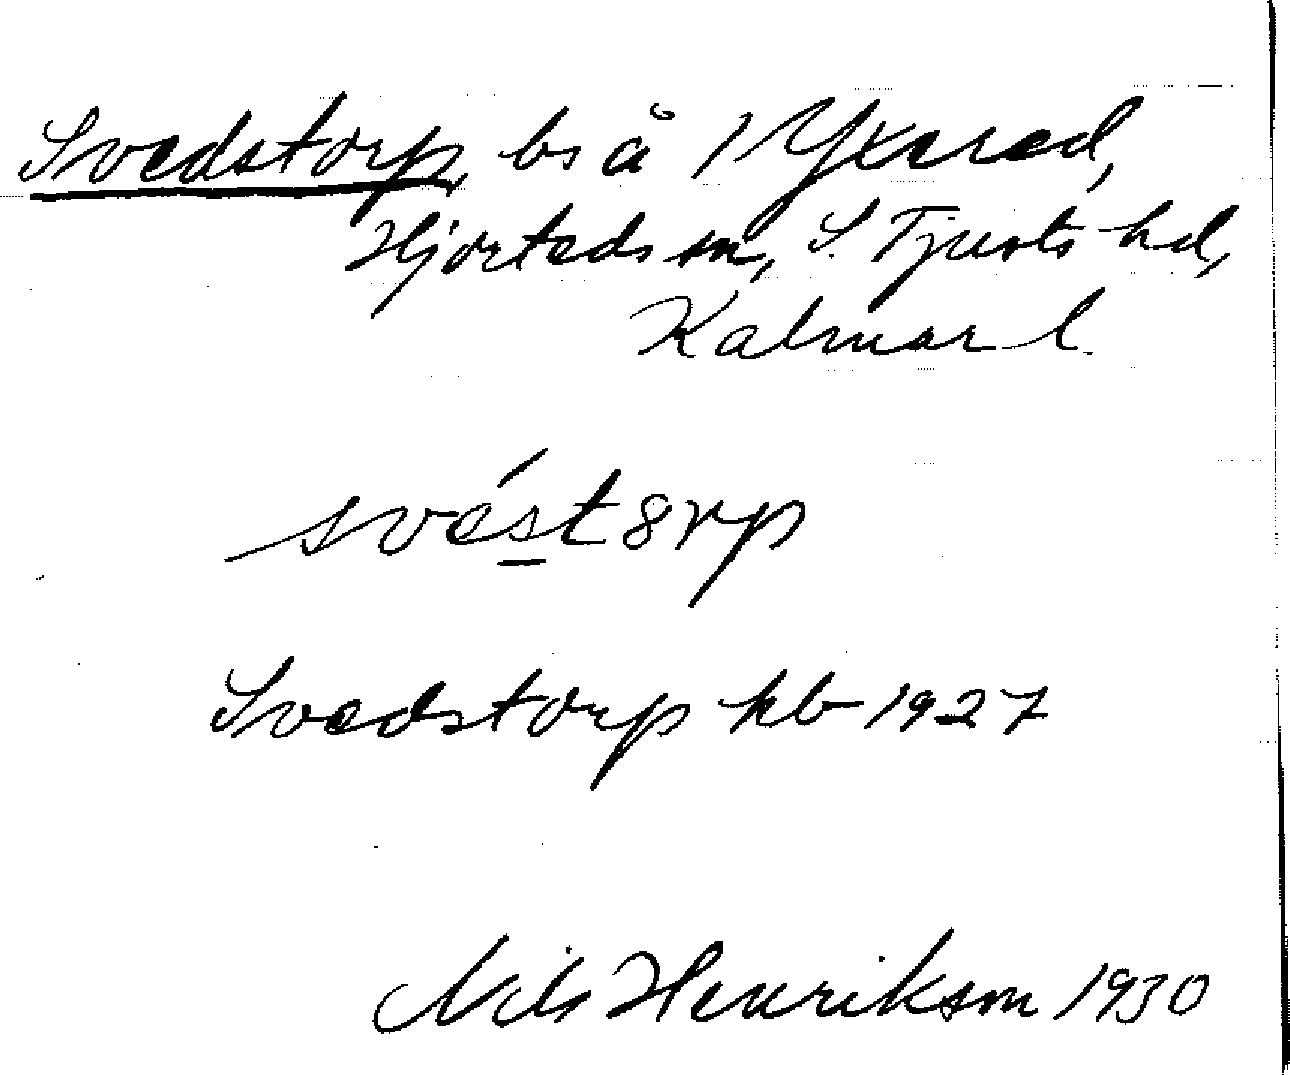 Svedstorp, bs å 1 Yxered,
Hjorteds sn, S. Tjusts hd,
Kalmar l.
svést8rp
Svedstorp kb 1927
Nils Henrikson 1930